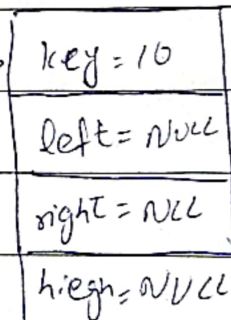 key = 10
left = NULL
right = NLL
hiegh = NULL